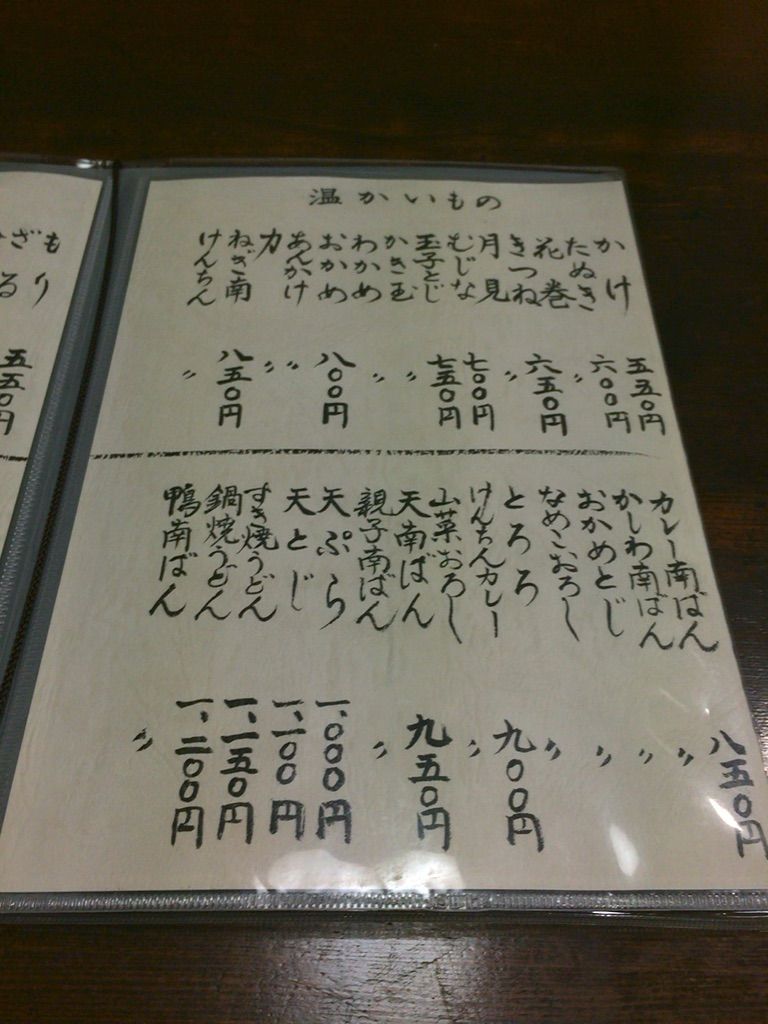 温かいもの
かけ 五五〇円
たぬき 六〇〇円
花巻 〃
きつね 六五〇円
月見 〃
むじな 七〇〇円
玉子とじ 七五〇円
かき玉 〃
わかめ 〃
おかめ 八〇〇円
あんかけ 〃
力 〃
ねぎ南 八五〇円
けんちん 〃
カレー南ばん 八五〇円
かしわ南ばん 〃
おかめとじ 〃
なめこおろし 〃
とろろ 〃
けんちんカレー 九〇〇円
山菜おろし 〃
天南ばん 九五〇円
親子南ばん 〃
天ぷら 一、〇〇〇円
天とじ 一、一〇〇円
すき焼うどん 一、一五〇円
鍋焼うどん 一、二〇〇円
鴨南ばん 〃
もり 五五〇円
ざる